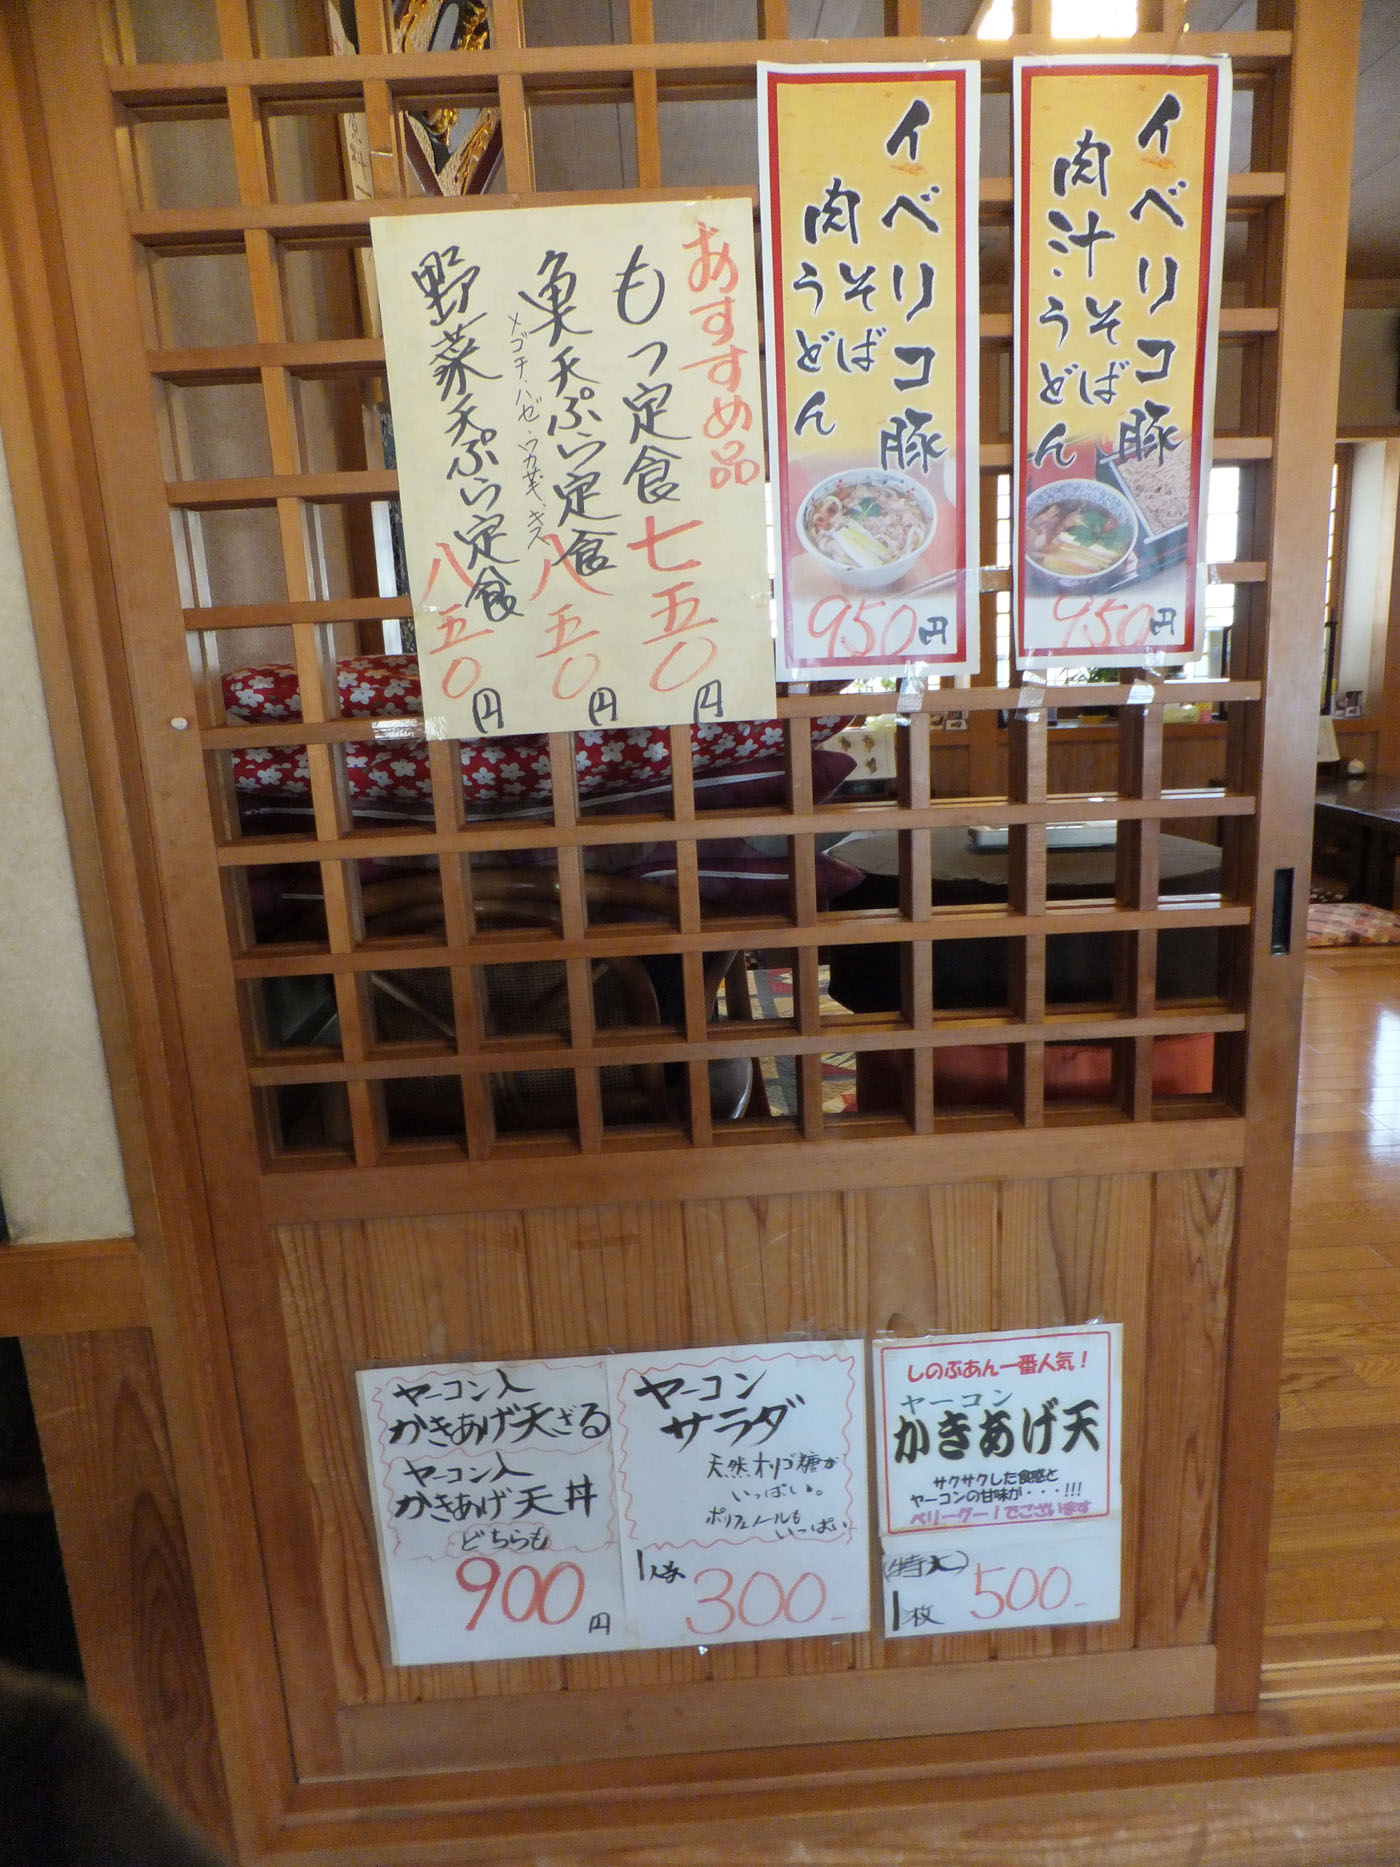 イベリコ豚
肉汁そば
うどん
950円
イベリコ豚
肉そば
うどん
950円
おすすめ品
もつ定食 七五〇円
魚天ぷら定食 八五〇円
メゴチ、ハゼ、ワカサギ、キス
野菜天ぷら定食 八五〇円
ヤーコン入
かきあげ天ざる
ヤーコン入
かきあげ天丼
どちらも
900円
ヤーコン
サラダ
天然オリゴ糖が
いっぱい。
ポリフェノールも
いっぱい
1人前 300-
しのぶあん一番人気!
ヤーコン
かきあげ天
サクサクした食感と
ヤーコンの甘味が・・・!!!
ベリーグー!でございます
(特大)
1枚 500-